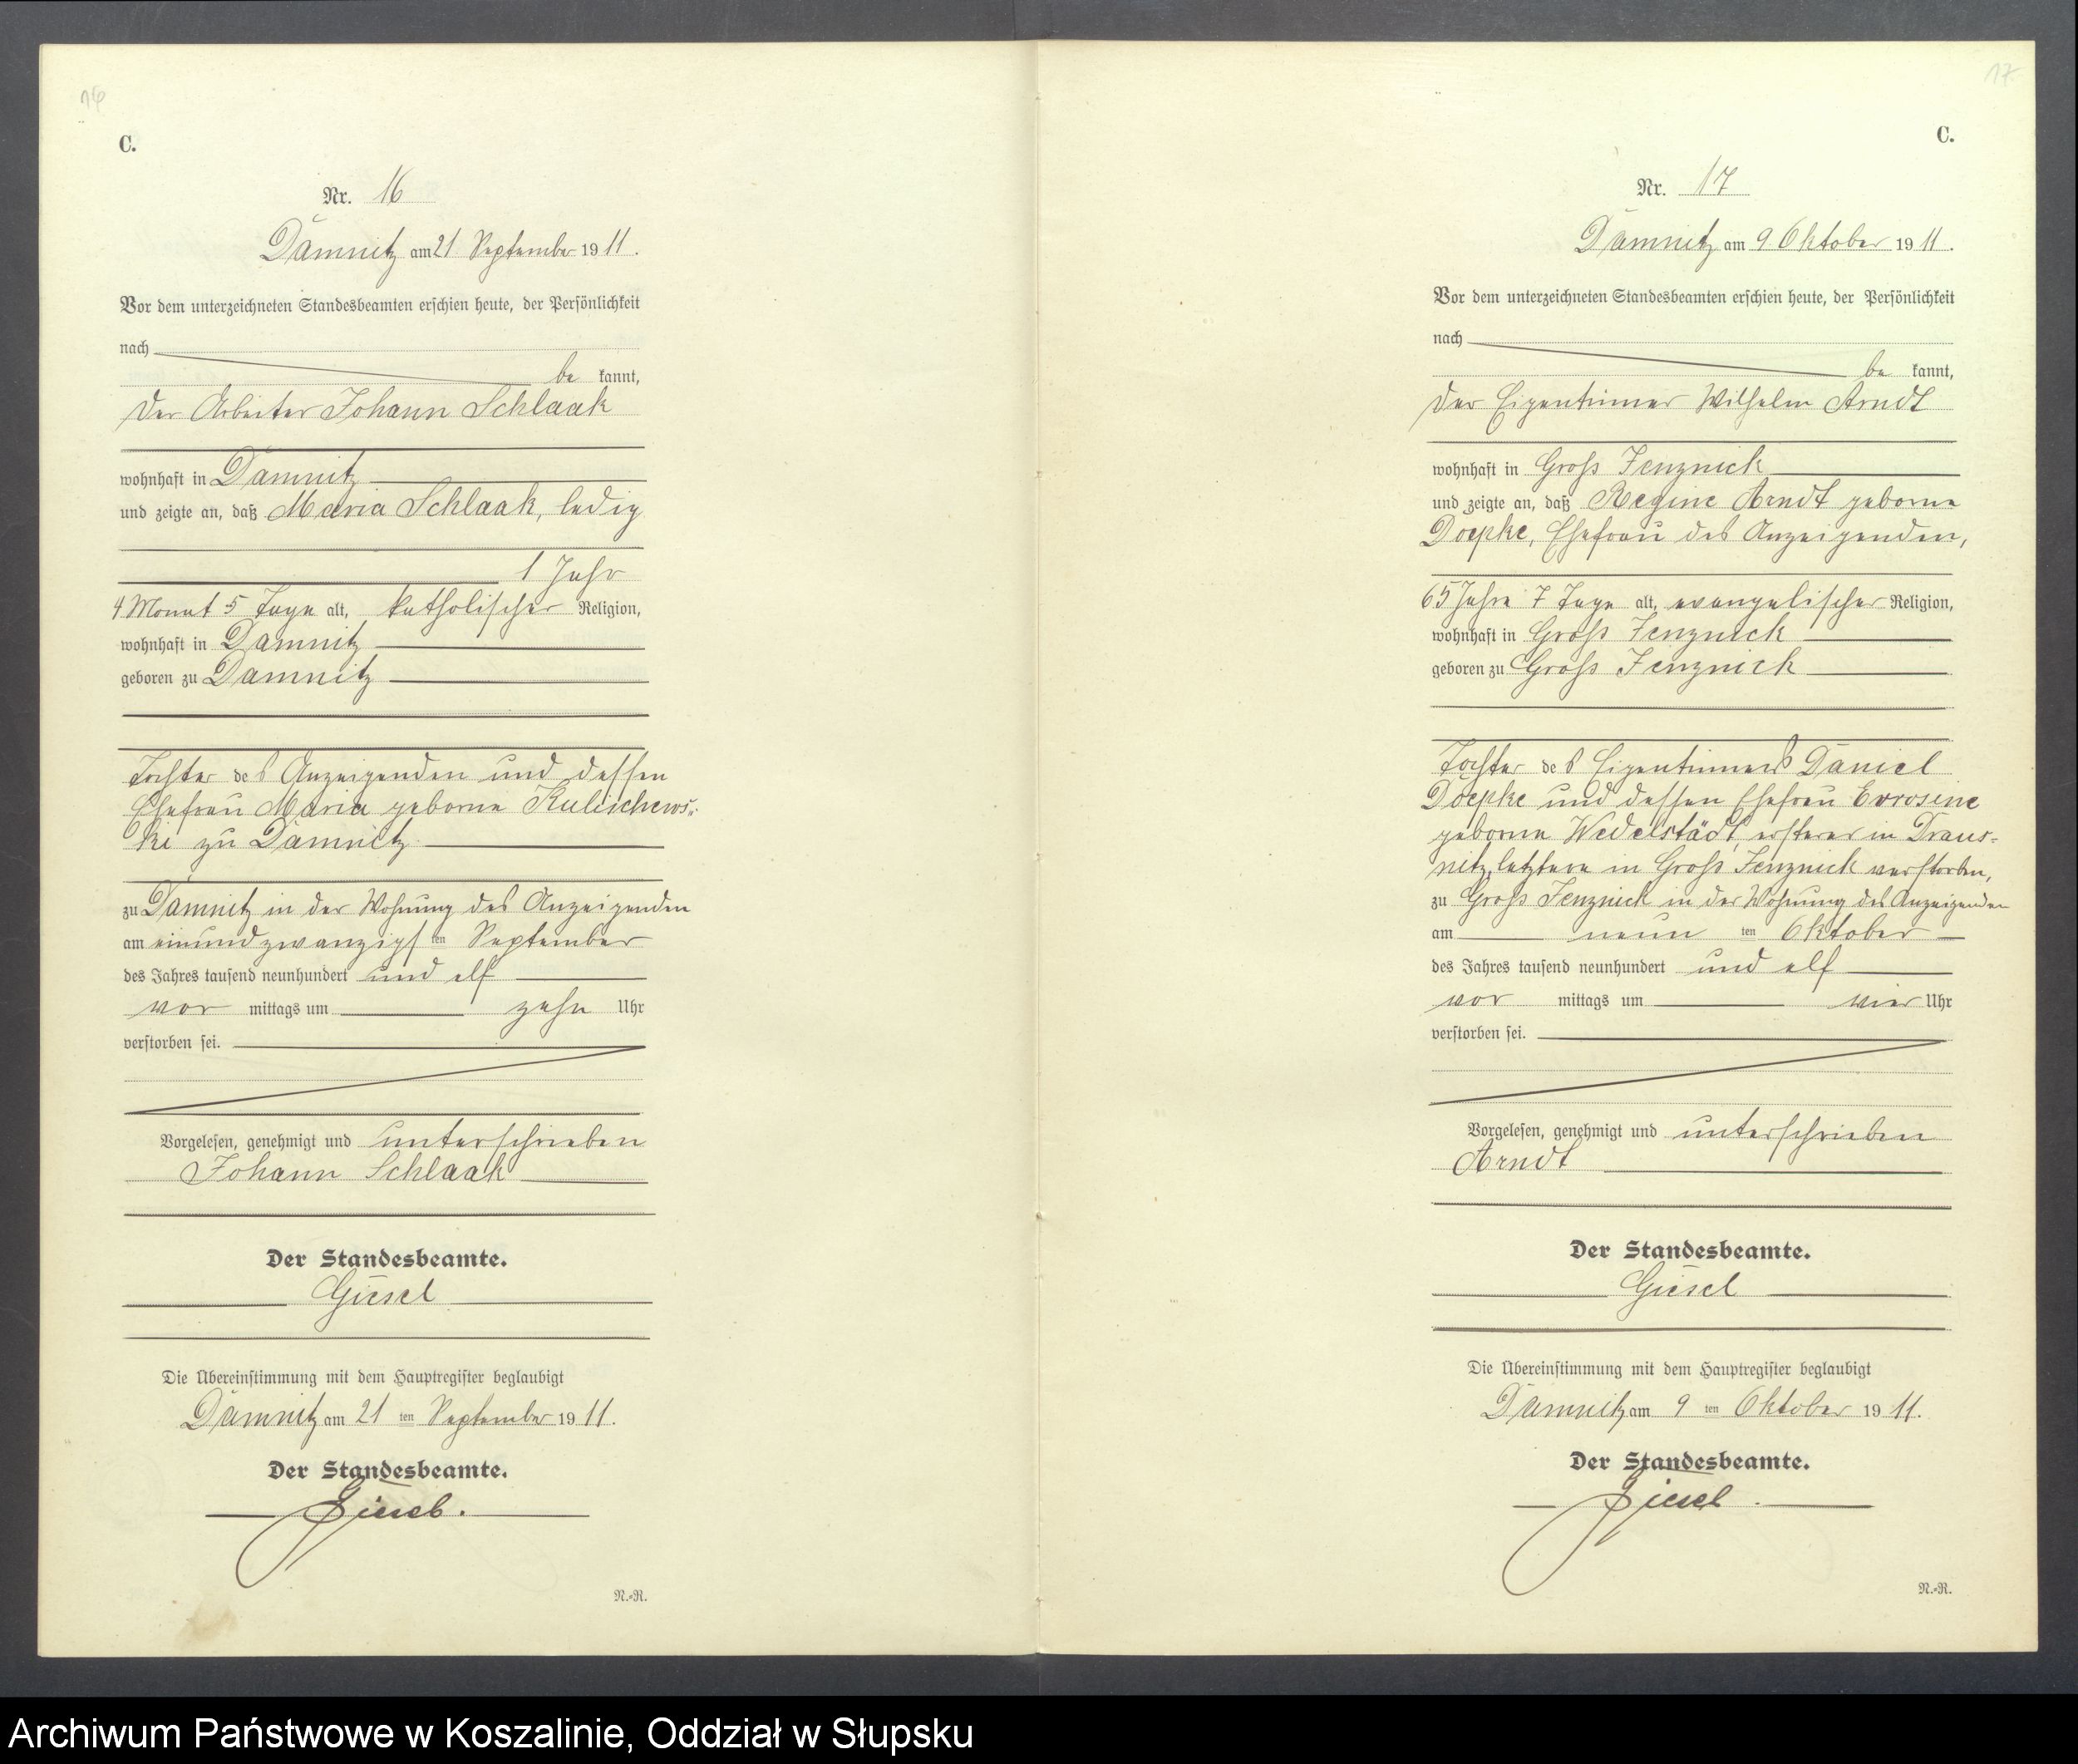 16
C.
Nr. 16
Damnitz am 21 September 1911.
Vor dem unterzeichneten Standesbeamten erschien heute, der Persönlichkeit
nach
be kannt,
der Arbeiter Johann Schlaak
wohnhaft in Damnitz
und zeigte an, daß Maria Schlaak, ledig
1 Jahr
4 Monat 5 Tage alt, katholischer Religion,
wohnhaft in Damnitz
geboren zu Damnitz
Tochter des Anzeigenden und dessen
Ehefrau Maria geborne Kulischews-
ki zu Damnitz
zu Damnitz in der Wohnung des Anzeigenden
am einundzwanzigsten September
des Jahres tausend neunhundert und elf
vor mittags um zehn Uhr
verstorben sei.
Vorgelesen, genehmigt und unterschrieben
Johann Schlaak
Der Standesbeamte.
Giesel
Die Übereinstimmung mit dem Hauptregister beglaubigt
Damnitz am 21 ten September 1911.
Der Standesbeamte.
Giesel.
N.-R.
17
C.
Nr. 17
Damnitz am 9 Oktober 1911.
Vor dem unterzeichneten Standesbeamten erschien heute, der Persönlichkeit
nach
be kannt,
der Eigentümer Wilhelm Arndt
wohnhaft in Gross Jenznick
und zeigte an, daß Regine Arndt geborne
Doepke, Ehefrau des Anzeigenden,
65 Jahre 7 Tage alt, evangelischer Religion,
wohnhaft in Gross Jenznick
geboren zu Gross Jenznick
Tochter des Eigentümers Daniel
Doepke und dessen Ehefrau
geborne Wedelstädt, ersterer in Draus-
nitz, letztere in Gross Jenznick verstorben,
zu Gross Jenznick in der Wohnung des Anzeigenden
am neun ten Oktober
des Jahres tausend neunhundert und elf
vor mittags um vier Uhr
verstorben sei.
Vorgelesen, genehmigt und unterschrieben
Arndt
Der Standesbeamte.
Giesel
Die Übereinstimmung mit dem Hauptregister beglaubigt
Damnitz am 9 ten Oktober 1911.
Der Standesbeamte.
Giesel.
N.-R.
Archiwum Państwowe w Koszalinie, Oddział w Słupsku